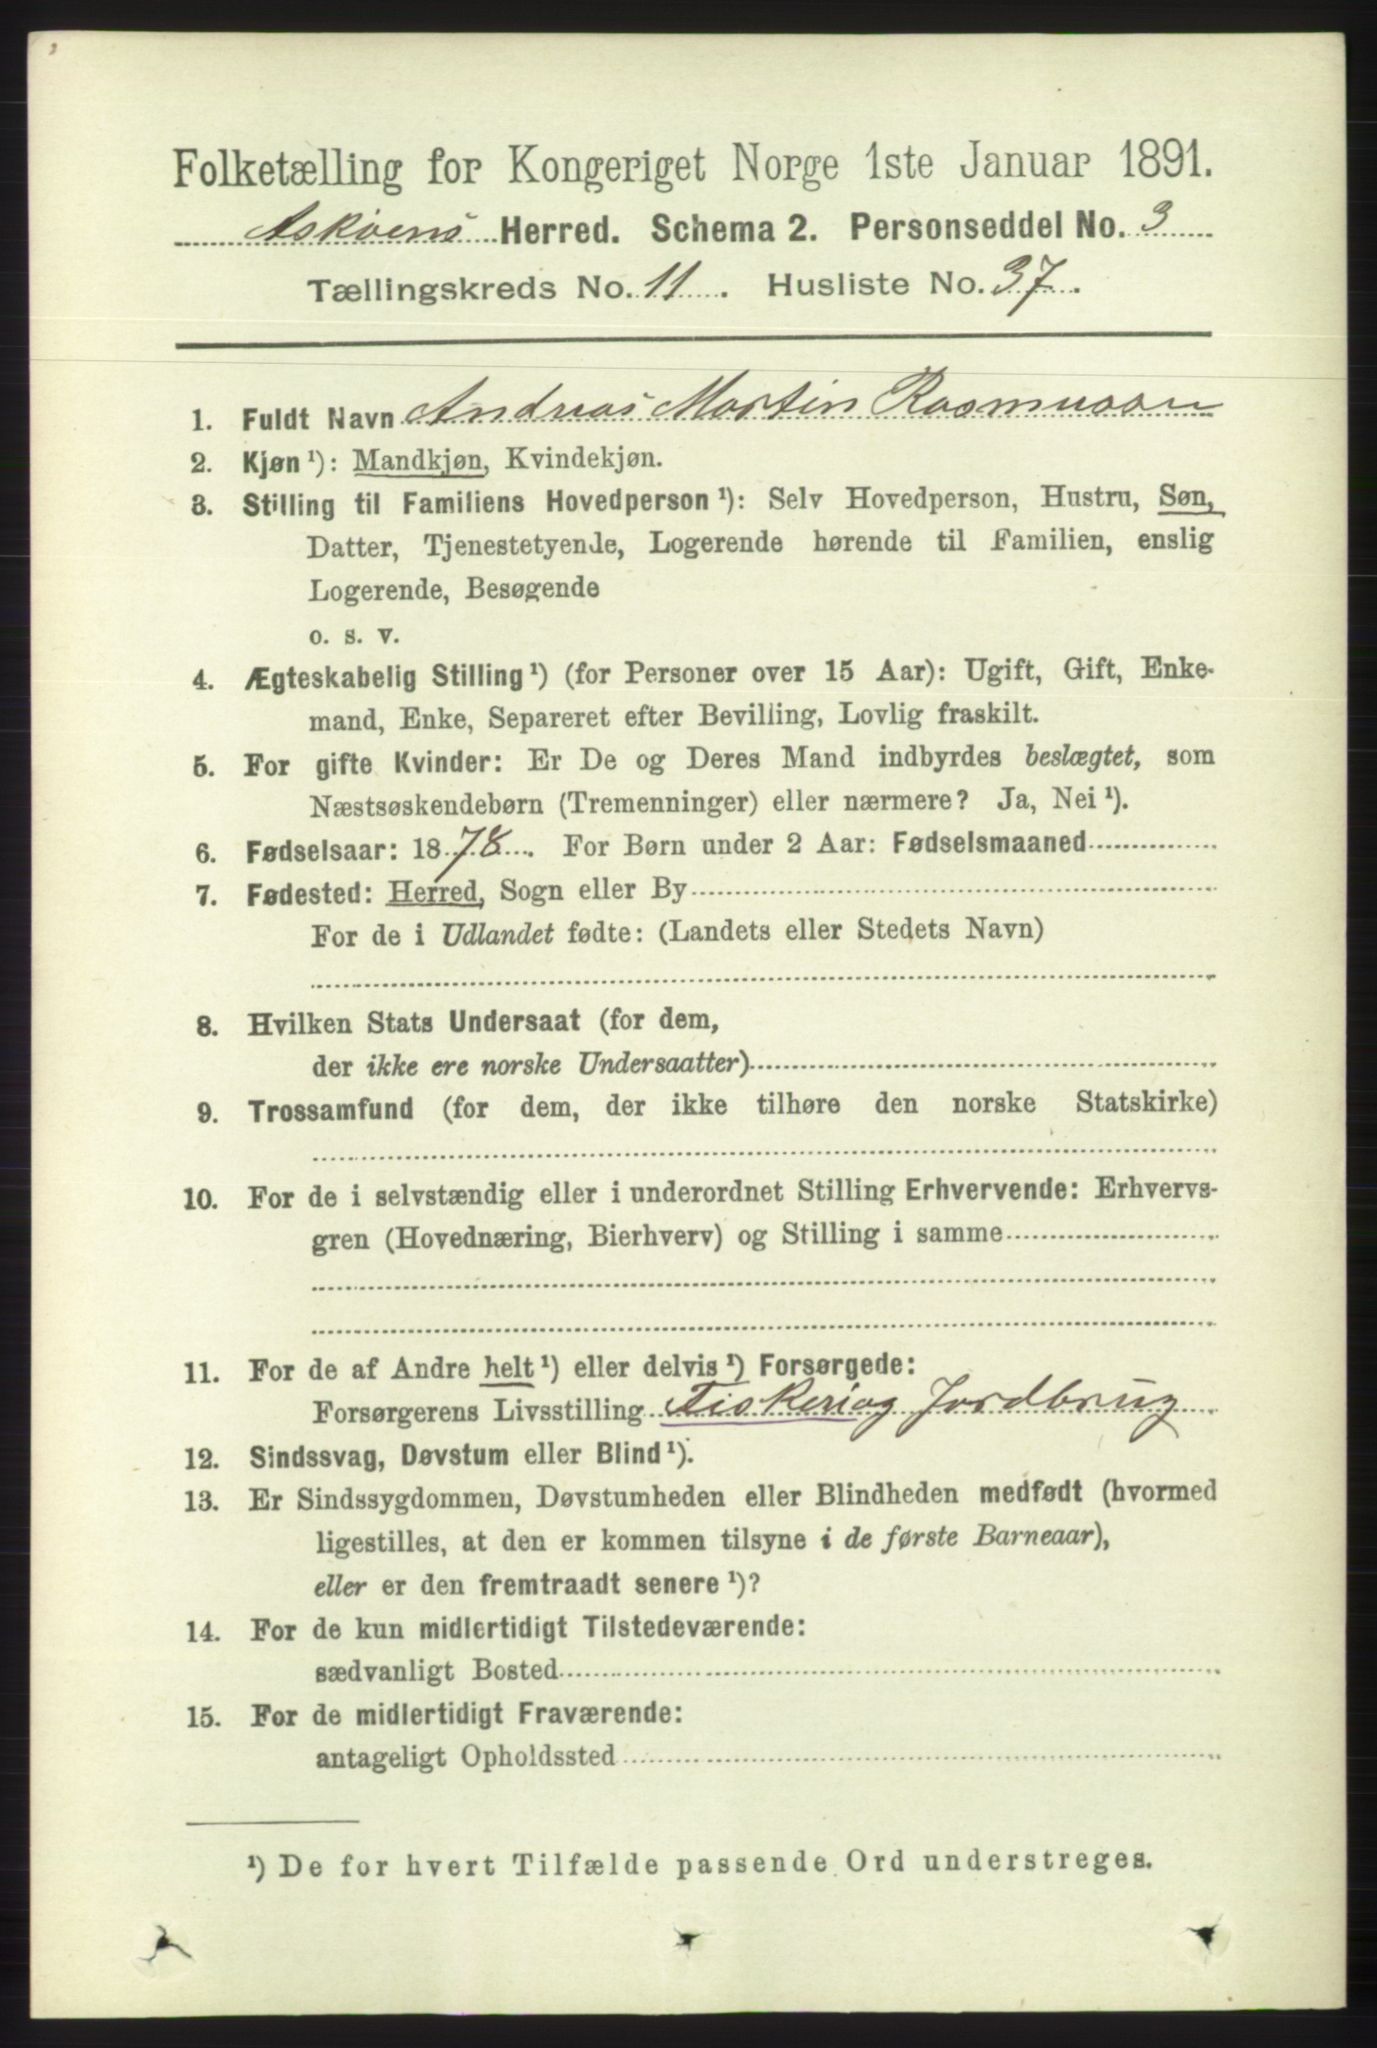 Folketælling for Kongeriget Norge 1ste Januar 1891.
Askøens Herred. Schema 2. Personseddel No. 3
Tællingskreds No. 11. Husliste No. 37.
1. Fuldt Navn Andreas Martin Rasmussen
2. Kjøn ¹): Mandkjøn, Kvindekjøn.
3. Stilling til Familiens Hovedperson ¹): Selv Hovedperson, Hustru, Søn,
Datter, Tjenestetyende, Logerende hørende til Familien, enslig
Logerende, Besøgende
o. s. v.
4. Ægteskabelig Stilling ¹) (for Personer over 15 Aar): Ugift, Gift, Enke-
mand, Enke, Separeret efter Bevilling, Lovlig fraskilt.
5. For gifte Kvinder: Er De og Deres Mand indbyrdes beslægtet, som
Næstsøskendebørn (Tremenninger) eller nærmere? Ja, Nei ¹).
6. Fødselsaar: 1878. For Børn under 2 Aar: Fødselsmaaned
7. Fødested: Herred, Sogn eller By
For de i Udlandet fødte: (Landets eller Stedets Navn)
8. Hvilken Stats Undersaat (for dem,
der ikke ere norske Undersaatter)
9. Trossamfund (for dem, der ikke tilhøre den norske Statskirke)
10. For de i selvstændig eller i underordnet Stilling Erhvervende: Erhvervs-
gren (Hovednæring, Bierhverv) og Stilling i samme
11. For de af Andre helt ¹) eller delvis ¹) Forsørgede:
Forsørgerens Livsstilling Fiskeri og Jordbrug
12. Sindssvag, Døvstum eller Blind ¹).
13. Er Sindssygdommen, Døvstumheden eller Blindheden medfødt (hvormed
ligestilles, at den er kommen tilsyne i de første Barneaar),
eller er den fremtraadt senere ¹)?
14. For de kun midlertidigt Tilstedeværende:
sædvanligt Bosted
15. For de midlertidigt Fraværende:
antageligt Opholdssted
¹) De for hvert Tilfælde passende Ord understreges.